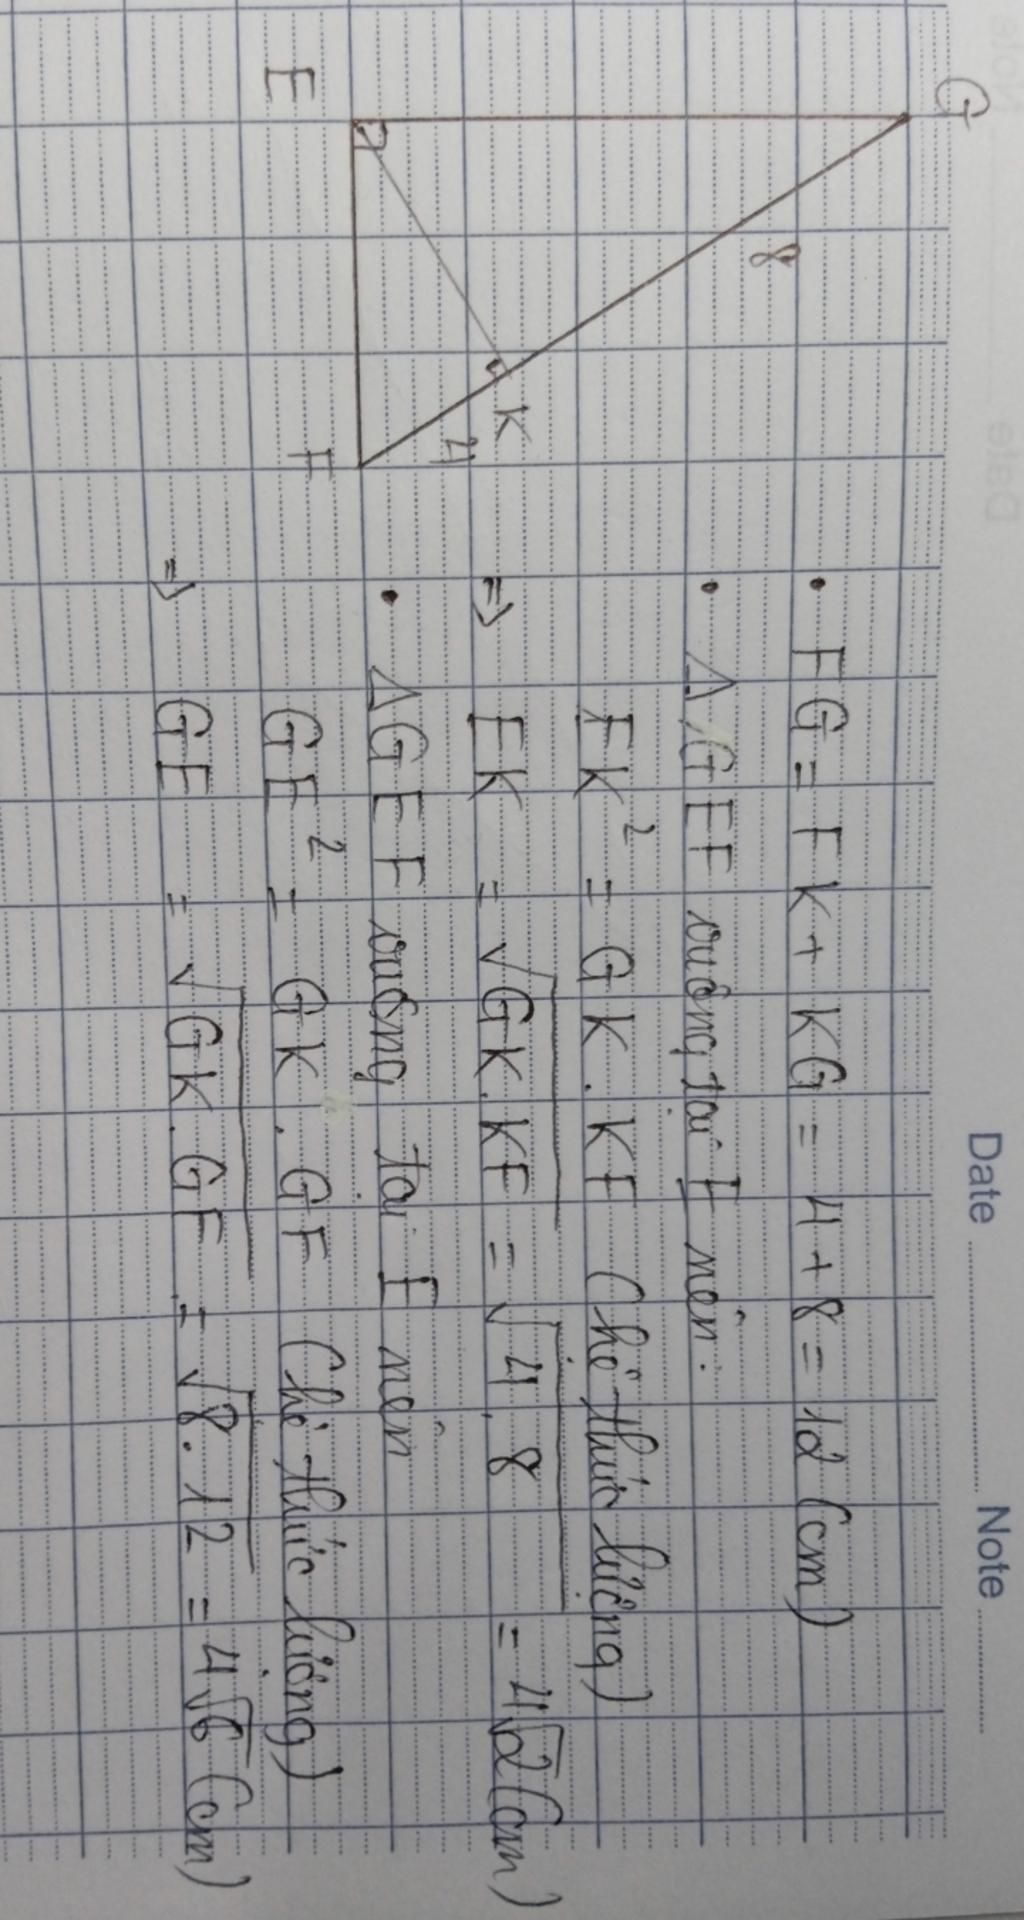 Date Note
G
8
K
4
E
F
• FG = FK + KG = 4 + 8 = 12 (cm)
• ΔGEF vuông tại E nên:
EK² = GK . KF (hê thức lượng)
=> EK = √GK.KF = √4.8 = 4√2 (cm)
• ΔGEF vuông tại E nên
GE² = GK . GF (hê thức lượng)
=> GE = √GK.GF = √8.12 = 4√6 (cm)